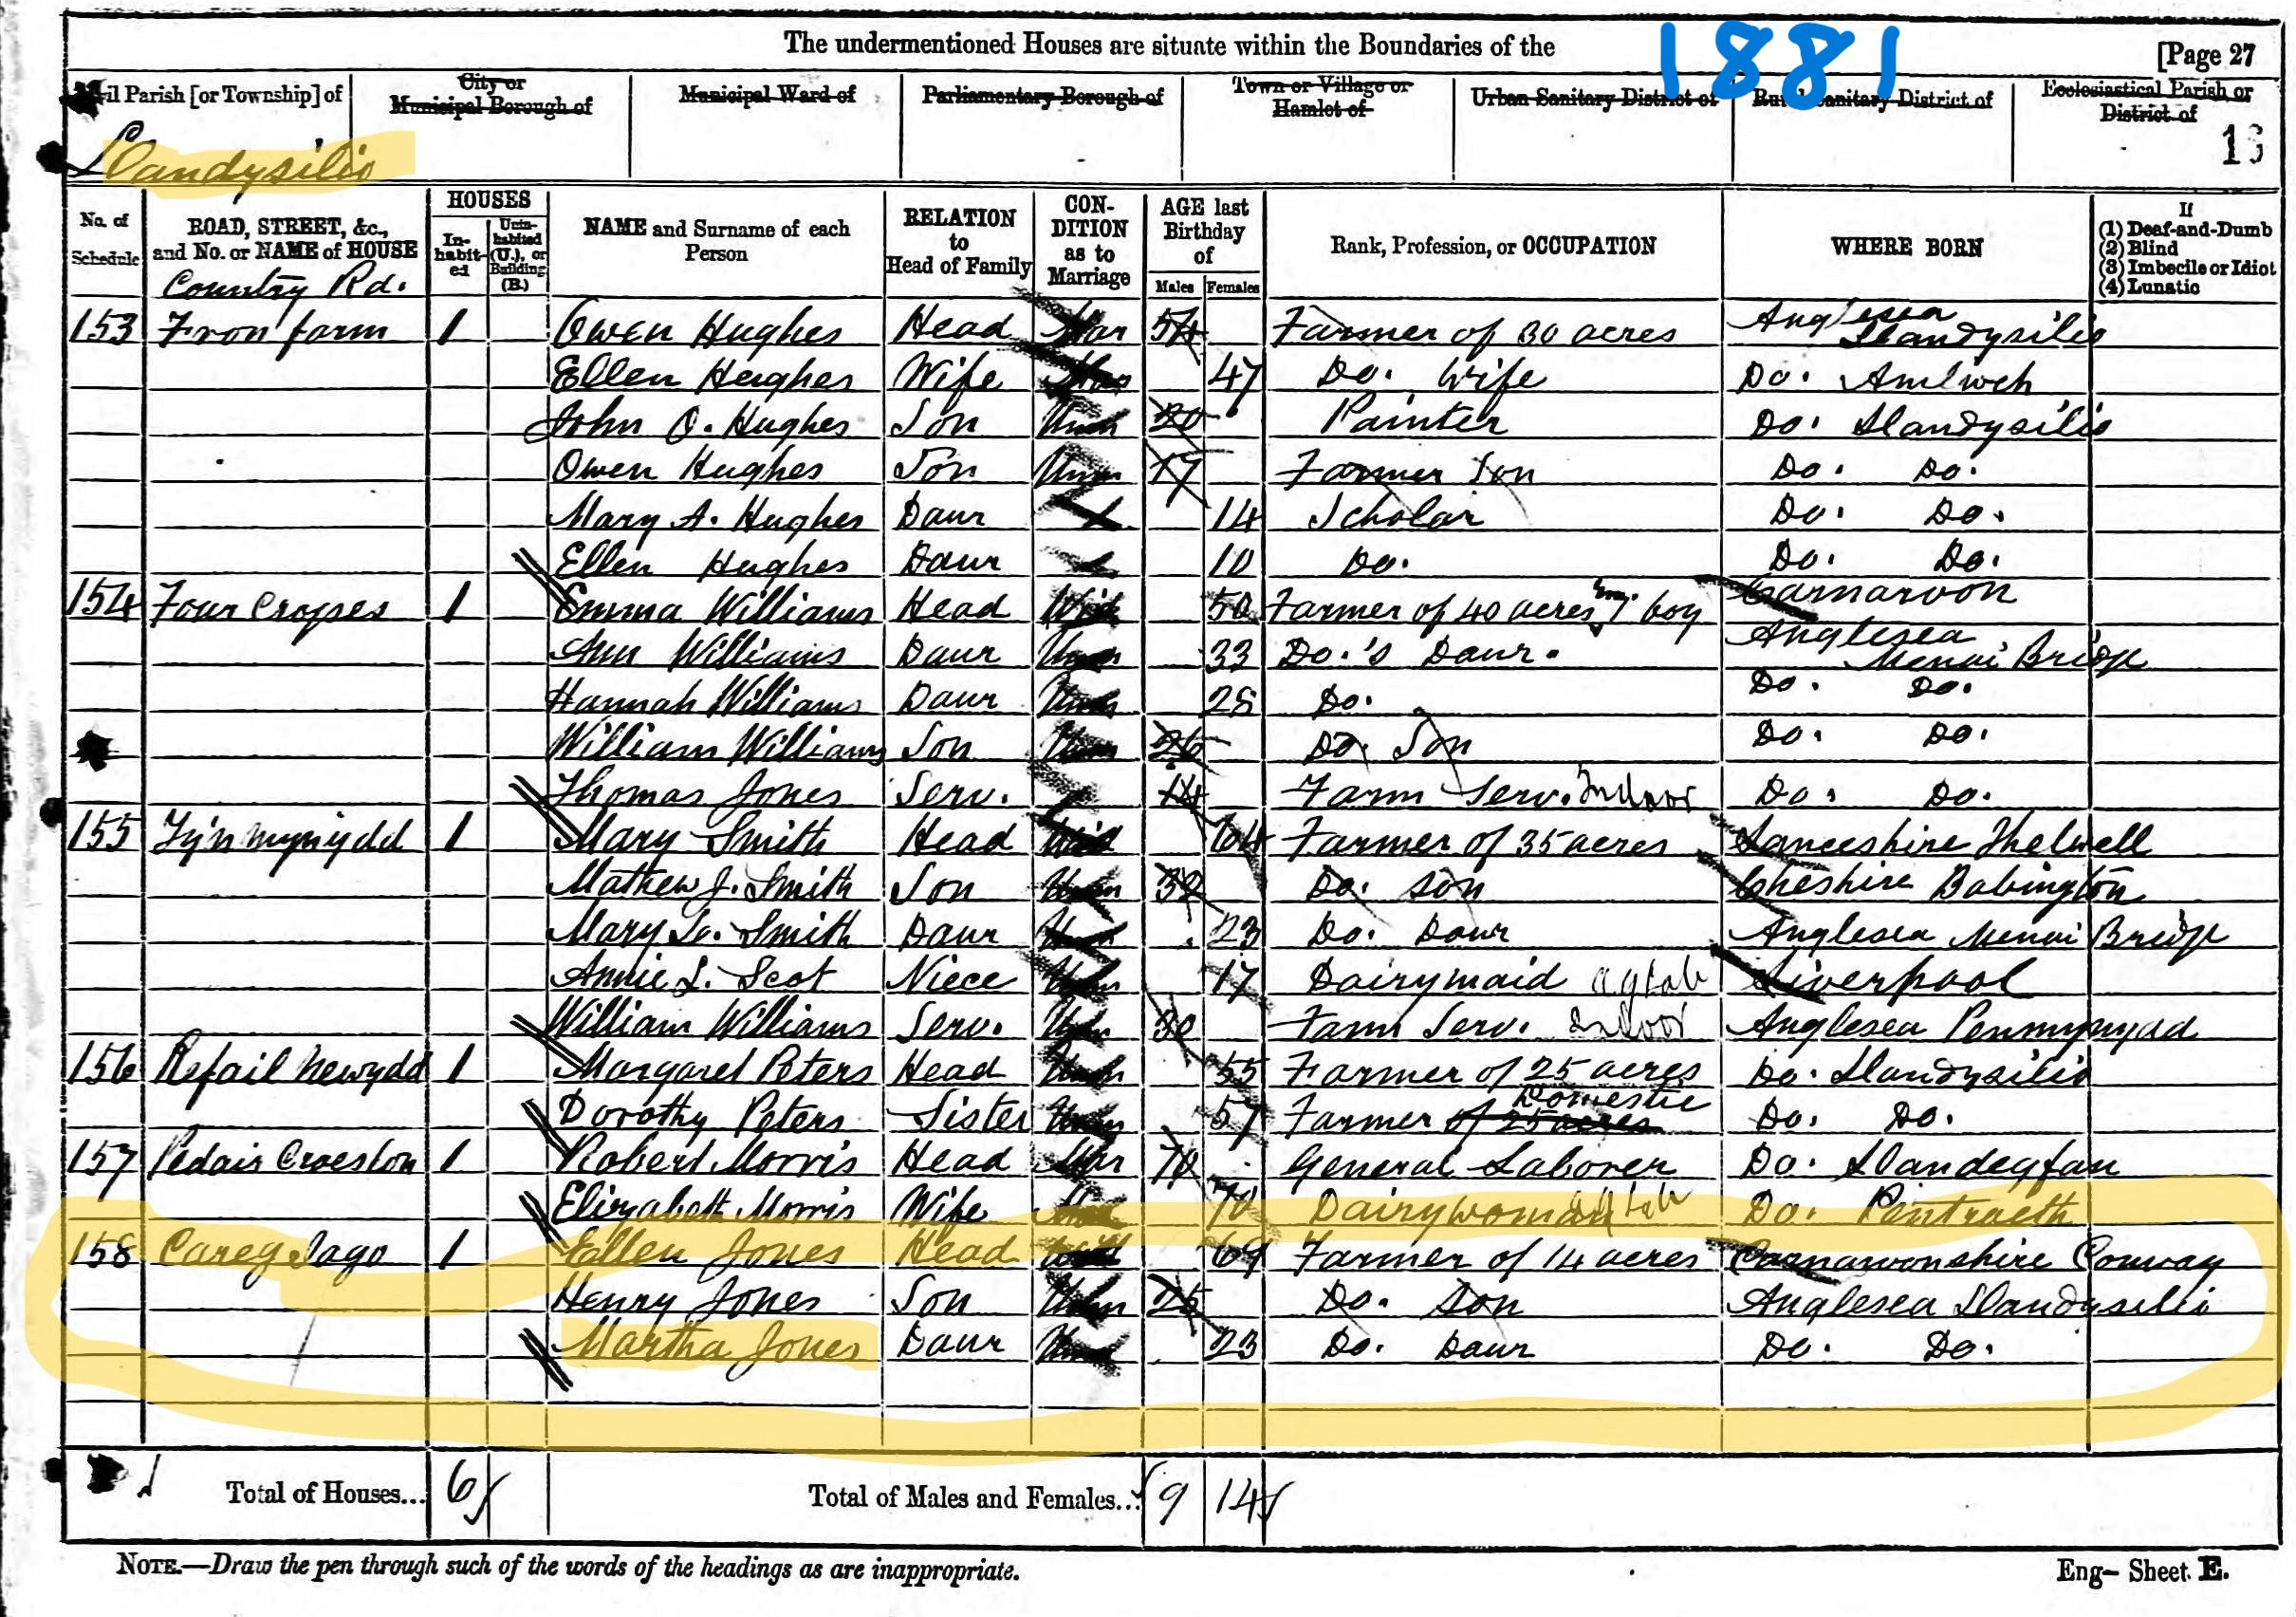 1881
The undermentioned Houses are situate within the Boundaries of the [Page 27
il Parish [or Township] of City or Municipal Borough of Municipal Ward of Parliamentary Borough of Town or Village or Hamlet of Urban Sanitary District of Rural Sanitary District of Ecclesiastical Parish or District of
Llandysilio 13
No. of Schedule ROAD, STREET, &c., and No. or NAME of HOUSE HOUSES Inhabited Uninhabited (U.), or Building (B.) NAME and Surname of each Person RELATION to Head of Family CONDITION as to Marriage AGE last Birthday of Males Females Rank, Profession, or OCCUPATION WHERE BORN If (1) Deaf-and-Dumb (2) Blind (3) Imbecile or Idiot (4) Lunatic
Country Rd.
153 Fron farm 1 Owen Hughes Head Mar 54 Farmer of 30 acres Anglesea Llandysilio
Ellen Hughes Wife Mar 47 Do. Wife Do. Amlwch
John O. Hughes Son Unm 20 Painter Do. Llandysilio
Owen Hughes Son Unm 17 Farmer Son Do. Do.
Mary A. Hughes Daur 14 Scholar Do. Do.
Ellen Hughes Daur 10 Do. Do. Do.
154 Four Crosses 1 Emma Williams Head Wid 50 Farmer of 40 acres Emp. 1 boy Carnarvon
Ann Williams Daur Unm 33 Do.'s Daur. Anglesea Menai Bridge
Hannah Williams Daur Unm 28 Do. Do. Do.
William Williams Son Unm 26 Do. Son Do. Do.
Thomas Jones Serv. 14 Farm Serv. Indoor Do. Do.
155 Ty'n mynydd 1 Mary Smith Head Wid 64 Farmer of 35 acres Lanceshire Thelwell
Mathew J. Smith Son Unm 32 Do. Son Cheshire Babington
Mary Smith Daur Unm 23 Do. Daur Anglesea Menai Bridge
Annie L. Scot Niece Unm 17 Dairymaid ag lab Liverpool
William Williams Serv. Unm 30 Farm Serv. Indoor Anglesea Penmynydd
156 Refail Newydd 1 Margaret Peters Head Unm 55 Farmer of 25 acres Do. Llandysilio
Dorothy Peters Sister Unm 57 Farmer of 25 acres Domestic Do. Do.
157 Pedair Croeslon 1 Robert Morris Head Mar 70 General Laborer Do. Llandegfan
Elizabeth Morris Wife Mar 70 Dairywoman ag lab Do. Pentraeth
158 Careg Iago 1 Ellen Jones Head Wid 69 Farmer of 14 acres Carnarvonshire Conway
Henry Jones Son Unm 25 Do. Son Anglesea Llandysilio
Martha Jones Daur Unm 23 Do. Daur Do. Do.
Total of Houses... 6 Total of Males and Females... 9 14
NOTE.—Draw the pen through such of the words of the headings as are inappropriate. Eng— Sheet E.